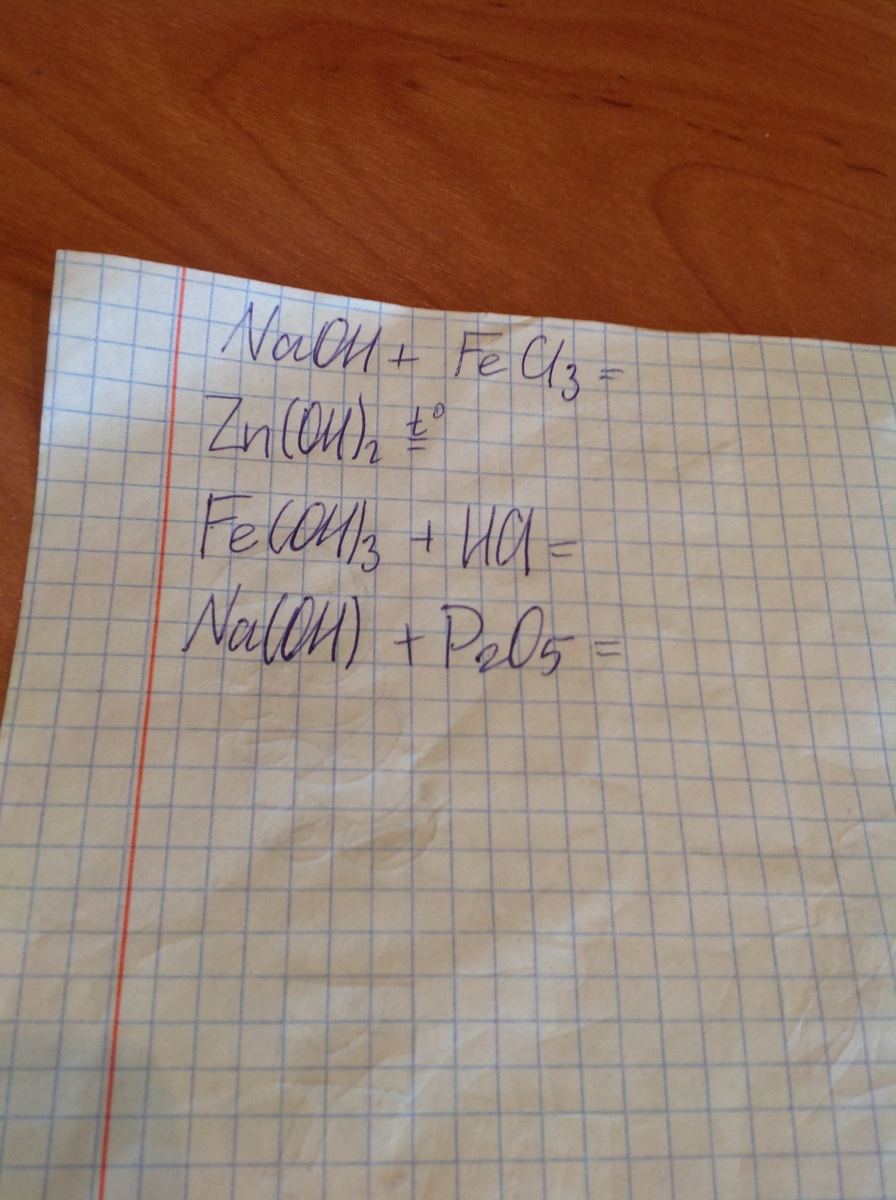 NaOH + FeCl₃ =
Zn(OH)₂ t°=
Fe(OH)₃ + HCl =
Na(OH) + P₂O₅ =